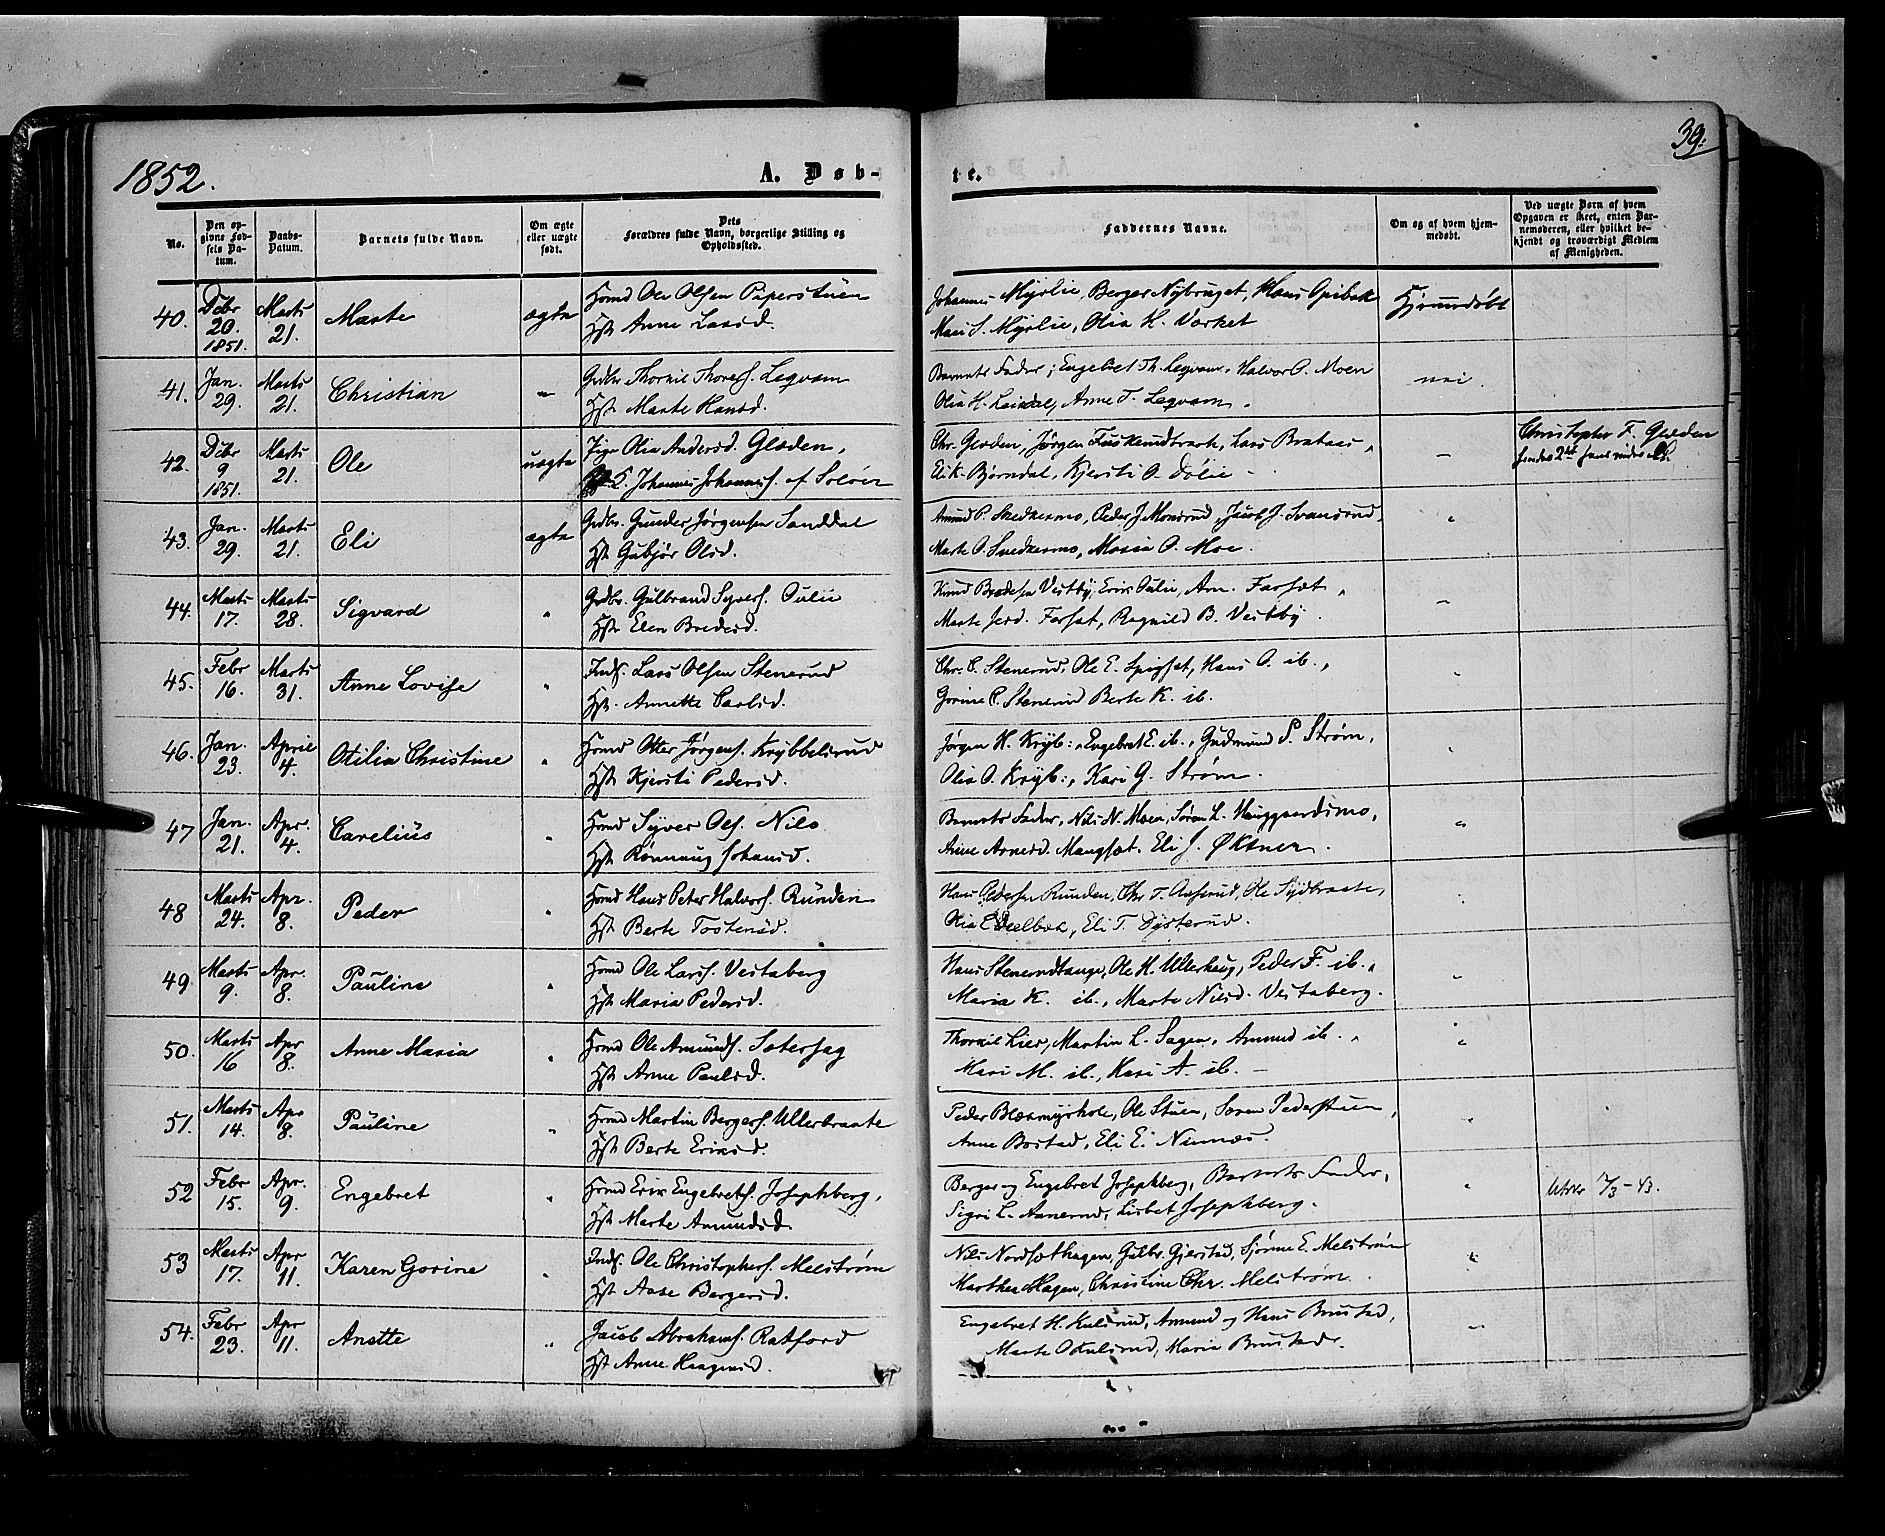 39.
1852.
A. Døb-
te.
No.
Den opgivne Fødsels Datum.
Daabs-Datum.
Barnets fulde Navn.
Om ægte eller uægte født.
Dets Forældres fulde Navn, borgerlige Stilling og Opholdssted.
Faddernes Navne.
Om og af hvem hjemmedøbt.
Ved uægte Børn af hvem Opgaven er skeet, enten Barnemoderen, eller hvilket bekjendt og troværdigt Medlem af Menigheden.
40. Dcbr 20. 1851. Marts 21. Marte ægte
Hsmd Ole Olsen Piperstuen
Hst. Anne Larsd.
Johannes Myrlie, Berger Nybruget, Hans
Mari S. Myrlie, Olia H. Værket
Hjemmedøbt
41. Jan. 29. Marts 21. Christian –
Grdbr Thorkil Thoresf. Leqvam
Hst. Marte Hansd.
Barnets Fader, Engebret Th. Leqvam, Halvor O. Moen
Olia H. Anne T. Leqvam.
nei.
42. Dcbr 9 1851. Marts 21. Ole uægte
Pige Olia Andersd. Glæden,
Johannes Johannesf. af Soløer
Chr. Glæden, Jørgen Fuskerudbraat, Lars Braten,
Eli K. Bjørndal, Kjersti O. Dølie –
–
Christopher T. Glæden
43. Jan. 29. Marts 21. Eli ægte
Grdbr. Gunder Jørgensen Sanddal
Hst. Gubjør Olsd.
Amund P. Snedkermo, Peder J. Monsrud, Jacob J. Svensrud,
Marte O. Snedkermo, Maria O. Moe.
"
44. Marts 17. Marts 28. Sigvard "
Grdbr. Gulbrand Syversf. Oulie
Hst. Elen Bredesd.
Knud Bredesen Vestby, Erik Oulie, Arn. Forset,
Marte Forset, Ragnild B. Vestby.
–
45. Febr 16. Marts 31. Anne Lovise "
Inds. Lars Olsen Stenerud
Hst. Annette Carlsd.
Chr. C. Stenerud, Ole E. Spigset, Hans O. ib.,
Gorine C. Stenerud Berte K. ib.
"
46. Jan. 23. April 4. Otilia Christine "
Hsmd Otter Jørgensf. Krybbelsrud
Hst. Kjersti Pedersd.
Jørgen H. Kryb:, Engebret E. ib., Gudmund P. Strøm,
Olia O. Kryb:, Kari G. Strøm.
"
47 Jan. 21. Apr. 4. Carelius "
Hsmd Syver Ols. Nilo
Hst. Rønnaug Johansd.
Barnets Fader, Nils N. Moen, Søren L. Hauggaardsmo,
Anne Arnesd. Mangset, Eli J. Øktner.
"
48 Marts 24. Apr. 8. Peder "
Hsmd Hans Peter Halvorsf. Runden
Hst. Berte Tostensd.
Hans Pedersen Runden, Chr. T. Aaserud, Ole Sydbraate,
Eli T. Dysterud.
"
49. Marts 9. Apr. 8. Pauline "
Hsmd Ole Larsf. Vestaberg
Hst. Maria Pedersd.
Hans Stenerudhauge, Ole H. Ullerhaug, Peder F. ib.,
Maria K. ib., Marte Nilsd. Vestaberg.
"
50. Marts 16 Apr 8. Anne Maria "
Hsmd Ole Amundsf. Sætersag
Hst. Anne Paulsd.
Thorkil Lier, Martin L. Sagen, Amund ib.,
Mari M. ib., Kari A. ib. –
"
51. Marts 14. Apr 8. Pauline "
Hsmd Martin Bergersf. Ullerbraate
Hst. Berte Eriksd.
Peder Blæsmyrhole, Ole Stuen, Søren Pederstuen,
Anne Bostad, Eli E. Nunnæs.
"
52 Febr 15. Apr. 9. Engebret "
Hsmd Erik Engebretsf. Josephberg,
Hst. Marte Amundsd.
Berger og Engebret Josephberg, Barnets Fader,
Sigri L. Aanerud, Lisbet Josephberg.
"
53 Marts 17. Apr 11. Karen Gorine "
Inds. Ole Christophersf. Melstrøm
Hst. Aase Bergersd.
Nils Nordsethagen, Gulbr. Gjerstad, Sjønne E. Melstrøm
Marthea Hagen, Christine Chr. Melstrøm.
"
54. Febr 23. Apr 11. Anette "
Jacob Abrahamsf. Ratford
Hst. Anne Haagensd.
Engebret H. Kulsrud, Amund og Hans Brustad,
Marte O. Kulsrud, Maria Brustad.
"